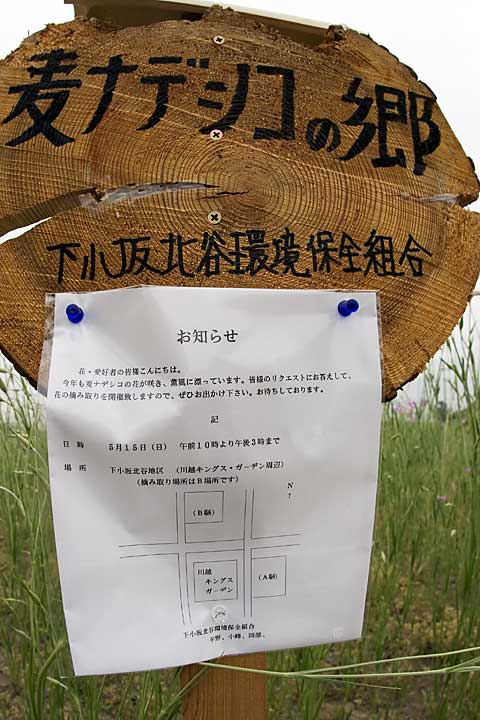 麦ナデシコの郷
下小坂北谷環境保全組合
お知らせ
花・愛好者の皆様こんにちは。
今年も麦ナデシコの花が咲き、薫風に漂っています。皆様のリクエストにお答えして、
花の摘み取りを開催致しますので、ぜひお出かけ下さい。お待ちしております。
記
日 時 5月15日（日） 午前10時より午後3時まで
場 所 下小坂北谷地区 （川越キングス・ガーデン周辺）
（摘み取り場所はB場所です）
N
↑
（B圃）
川越
キングス
ガーデン
（A圃）
下小坂北谷環境保全組合
平野、小峰、岡部、